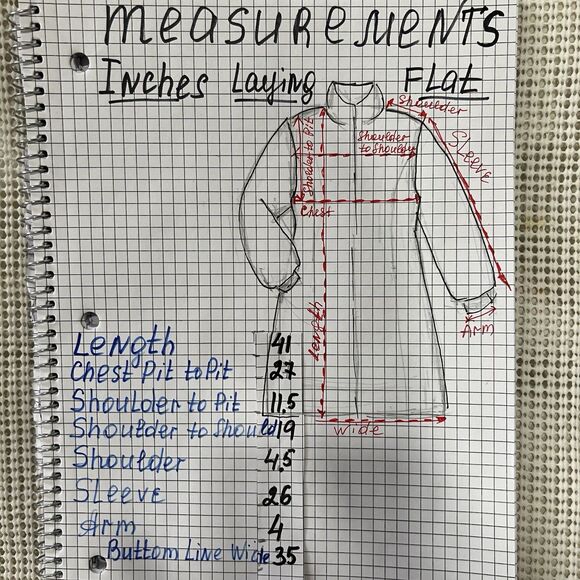 MEASUREMENTS
Inches Laying FLat
Shoulder
Sleeve
Shoulder to Pit
Shoulder
to Shoulder
Chest
Length
Arm
Wide
Length 41
Chest Pit to Pit 27
Shoulder to Pit 11.5
Shoulder to Should 19
Shoulder 4.5
Sleeve 26
Arm 4
Buttom Line Wide 35